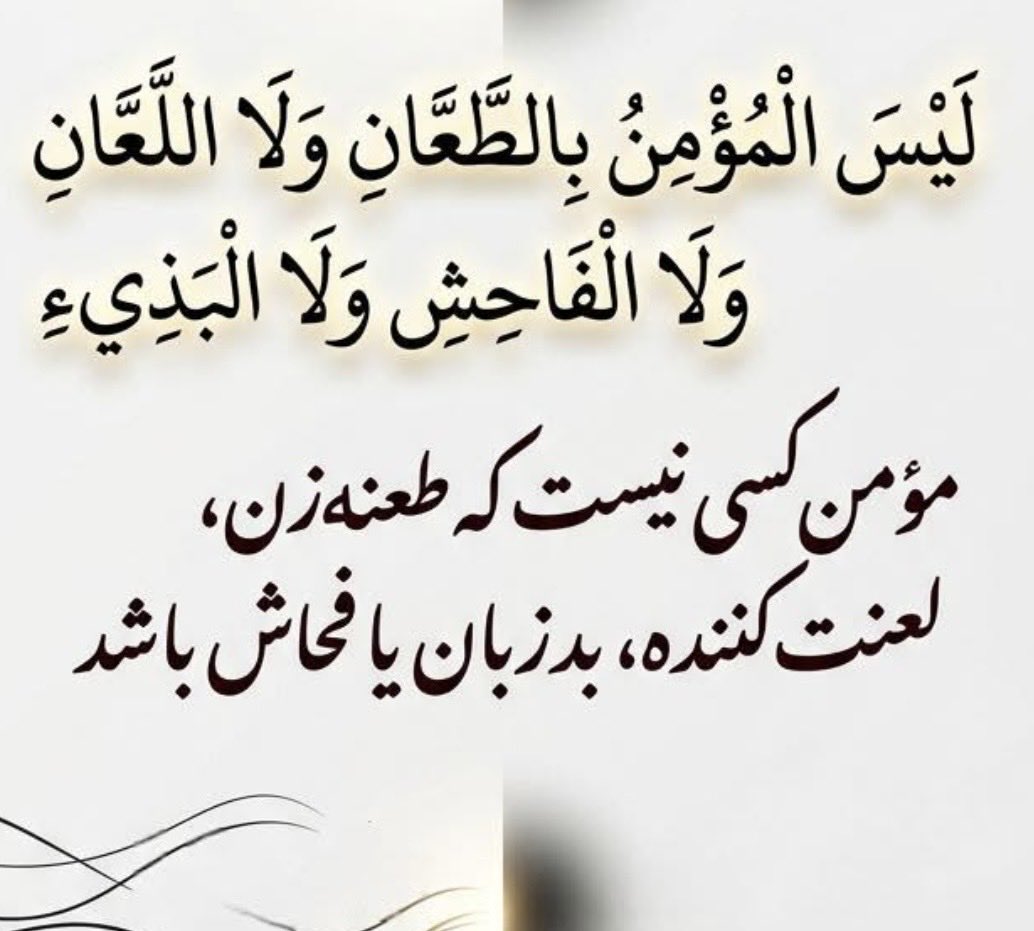 لَيْسَ الْمُؤْمِنُ بِالطَّعَّانِ وَلَا اللَّعَّانِ
وَلَا الْفَاحِشِ وَلَا الْبَذِيءِ
مؤمن کسی نیست که طعنه‌زن،
لعنت‌کننده، بدزبان یا فحاش باشد